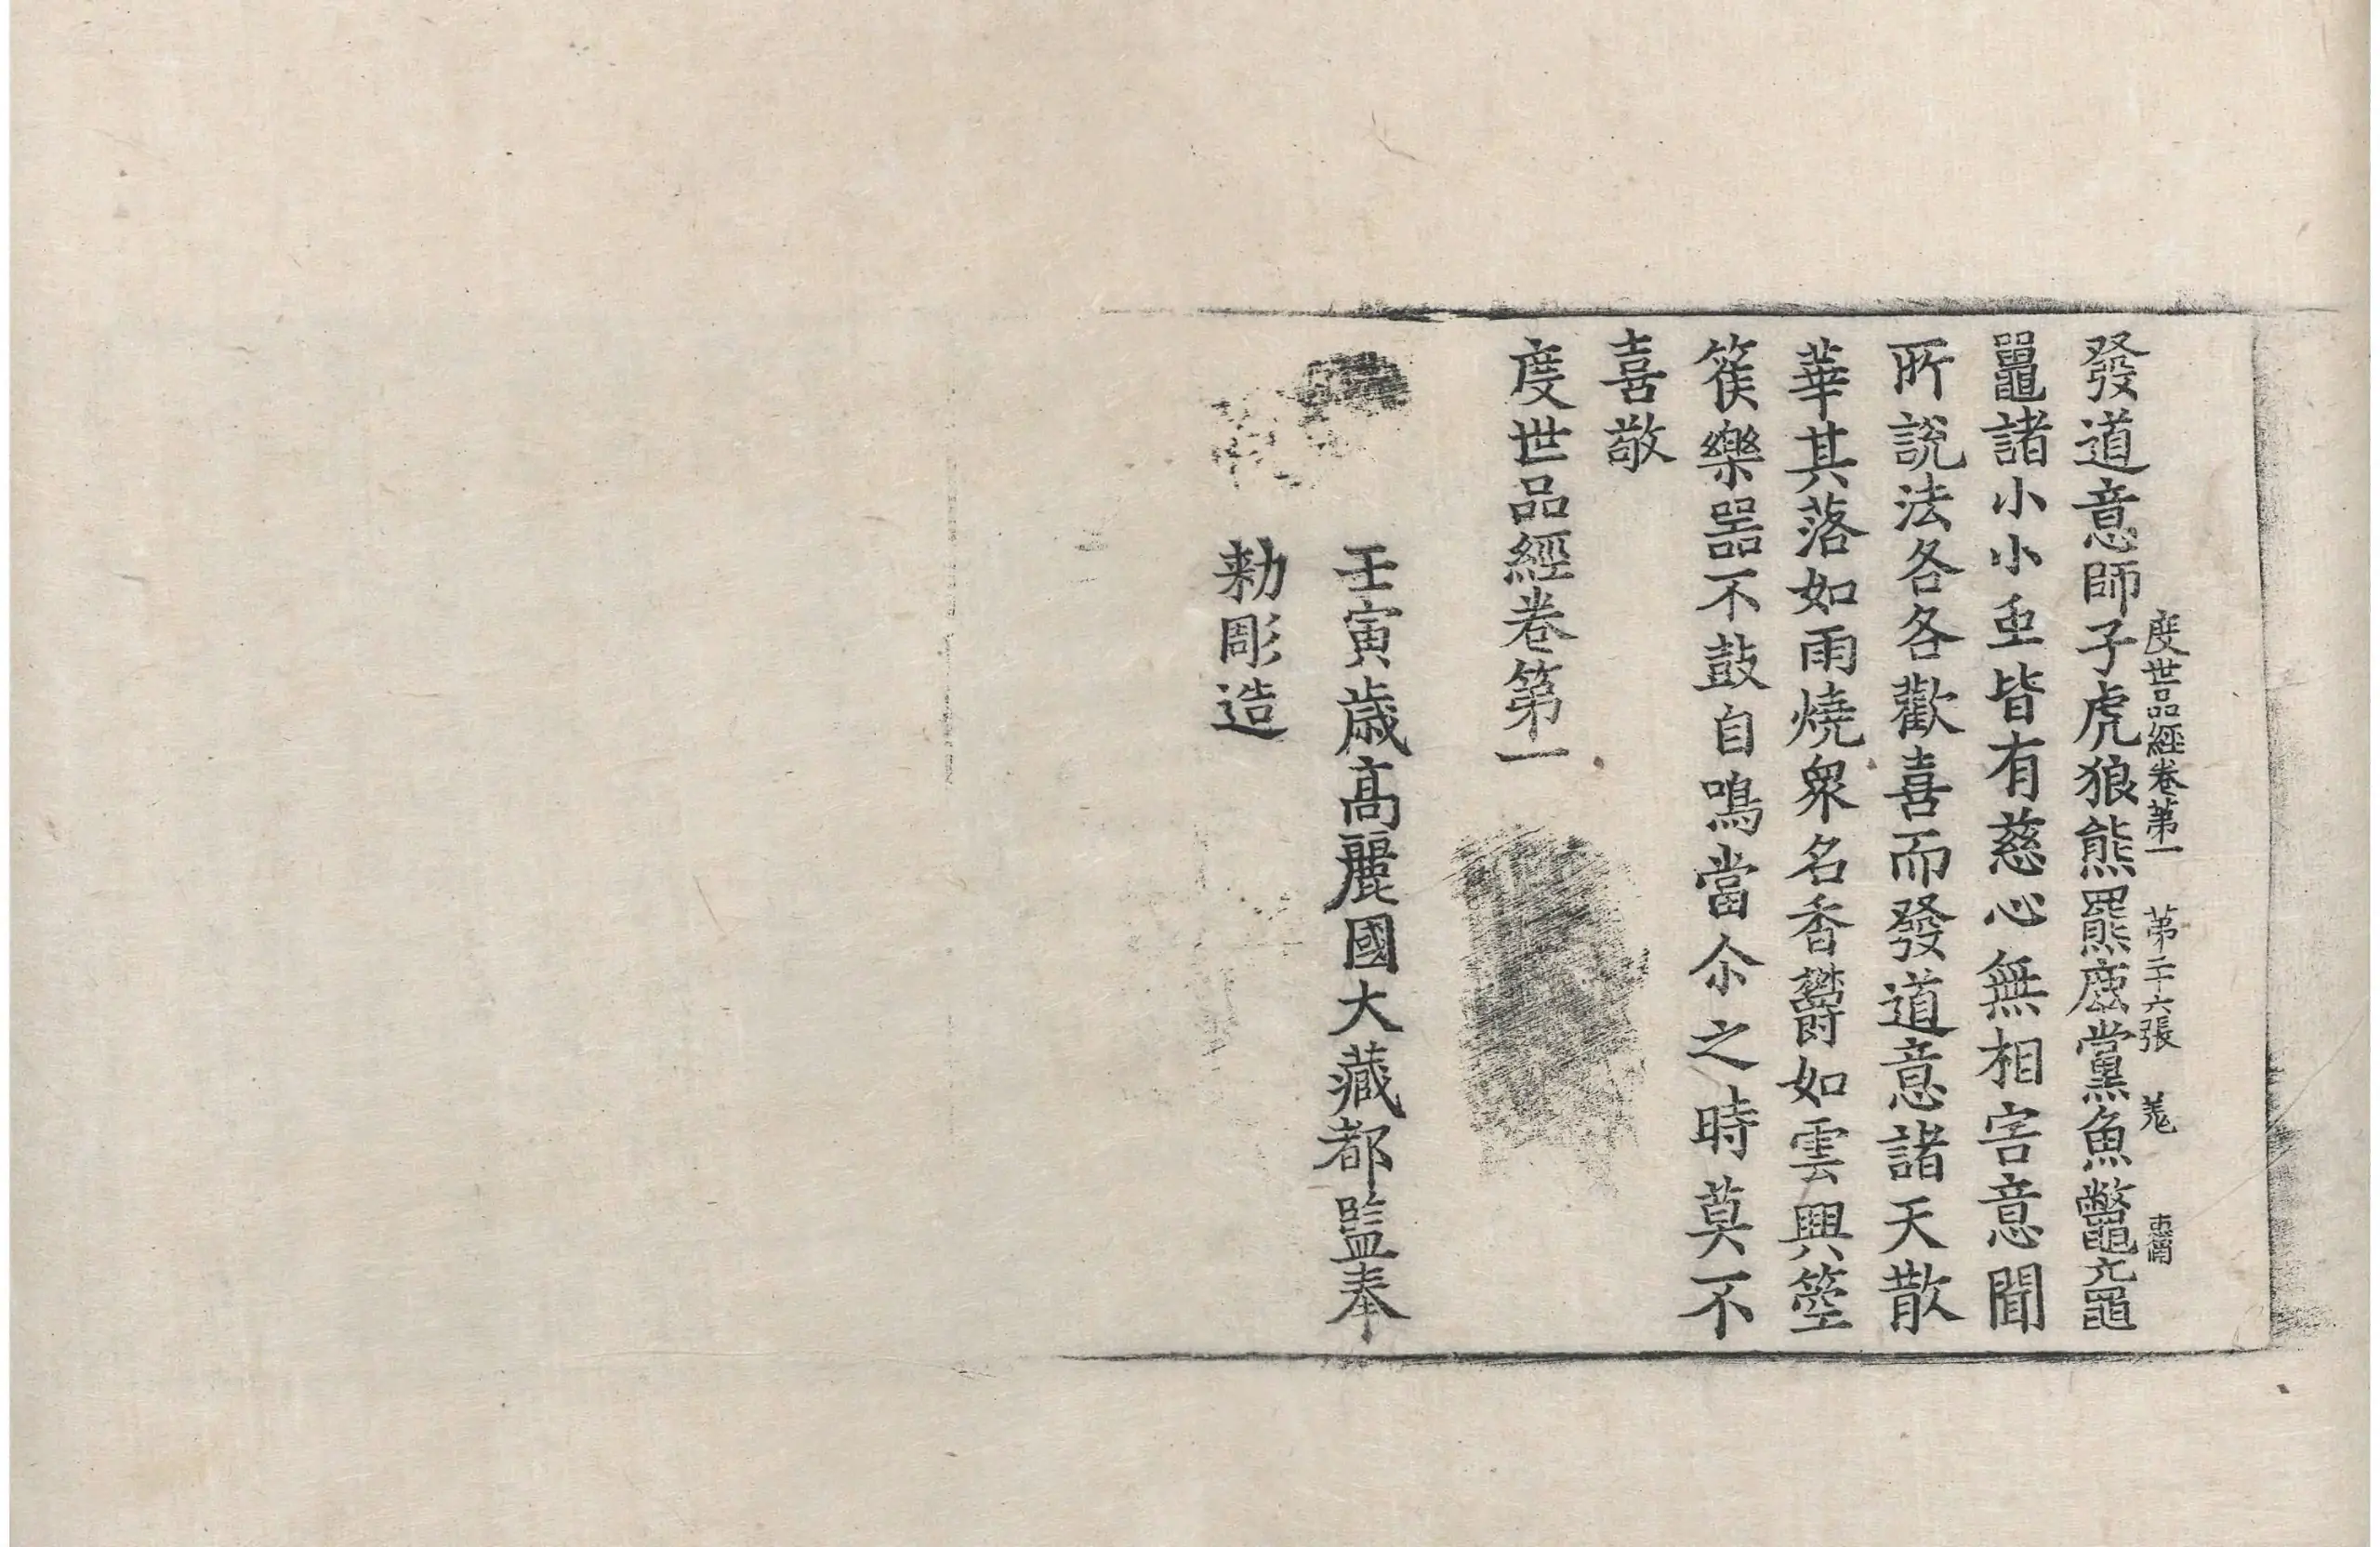 度世品經卷第一 第二十六張 羌
發道意師子虎狼熊羆鹿黨魚鼈黿
鼉諸小小虫皆有慈心無相害意聞
所說法各各歡喜而發道意諸天散
華其落如雨燒衆名香欝如雲興箜
篌樂器不鼓自鳴當尒之時莫不
喜敬
度世品經卷第一
壬寅歲高麗國大藏都監奉
勑彫造